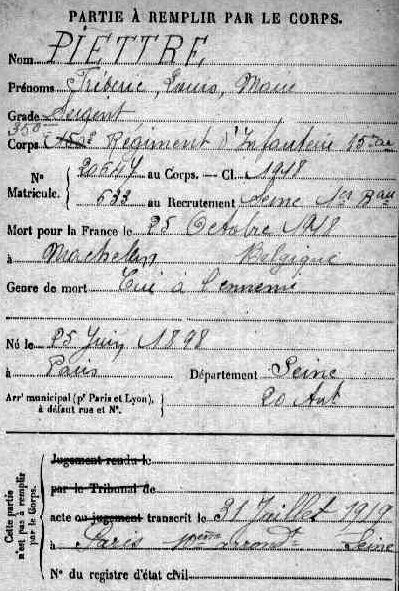 PARTIE À REMPLIR PAR LE CORPS.
Nom PIETTRE
Prénoms Fréderic, Louis, Marie
Grade Sergent
350e
Corps Régiment d'Infanterie
N° Matricule. 20647 au Corps. — Cl. 1918
633 au Recrutement Seine 1er Bau
Mort pour la France le 25 Octobre 1918
à Machelen Belgique
Genre de mort Tué à l'ennemi
Né le 25 Juin 1898
à Paris Département Seine
Arrt municipal (pr Paris et Lyon), à défaut rue et N°. 20 Art
Cette partie n'est pas à remplir par le Corps.
Jugement rendu le
par le Tribunal de
acte ou jugement transcrit le 31 Juillet 1919
à Paris Seine
N° du registre d'état civil